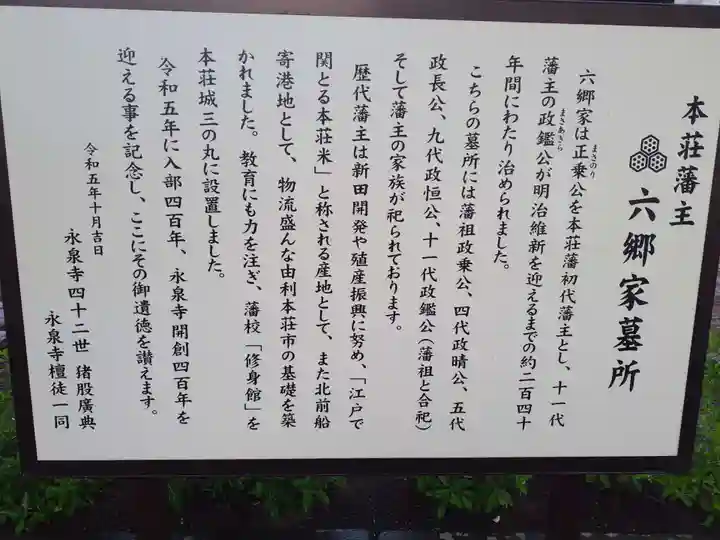 本荘藩主
六郷家墓所
六郷家は正乗公を本荘藩初代藩主とし、十一代
まさのり
藩主の政鑑公が明治維新を迎えるまでの約二百四十
まさあきら
年間にわたり治められました。
こちらの墓所には藩祖政乗公、四代政晴公、五代
政長公、九代政恒公、十一代政鑑公（藩祖と合祀）
そして藩主の家族が祀られております。
歴代藩主は新田開発や殖産振興に努め、「江戸で
関とる本荘米」と称される産地として、また北前船
寄港地として、物流盛んな由利本荘市の基礎を築
かれました。教育にも力を注ぎ、藩校「修身館」を
本荘城三の丸に設置しました。
令和五年に入部四百年、永泉寺開創四百年を
迎える事を記念し、ここにその御遺徳を讃えます。
令和五年十月吉日
永泉寺四十二世 猪股廣典
永泉寺檀徒一同